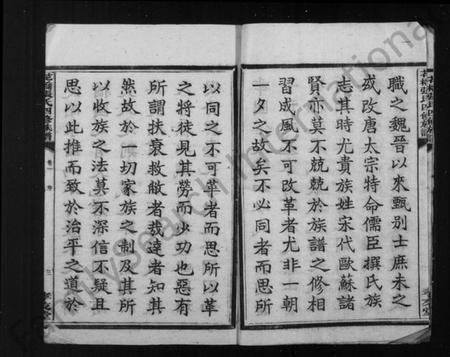 職之魏晉以來甄別士庶未之
或改唐太宗特命儒臣撰氏族
志其時尤貴族姓宋代歐蘇諸
賢亦莫不兢兢於族譜之修相
習成風不可改革者尤非一朝
一夕之故矣不必同者而思所
以同之不可革者而思所以革
之將徒見其勞而少功也惡有
所謂扶衰救敝者哉達者知其
然故於一切家族之制及其所
以收族之法莫不深信不疑且
思以此推而致於治平之道於
卷一
三
FamilySearch International